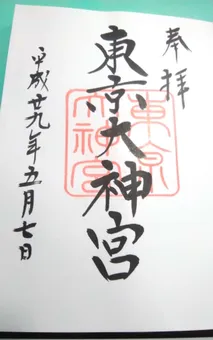 奉拝
東京大神宮
東京大神宮
平成廿九年五月七日